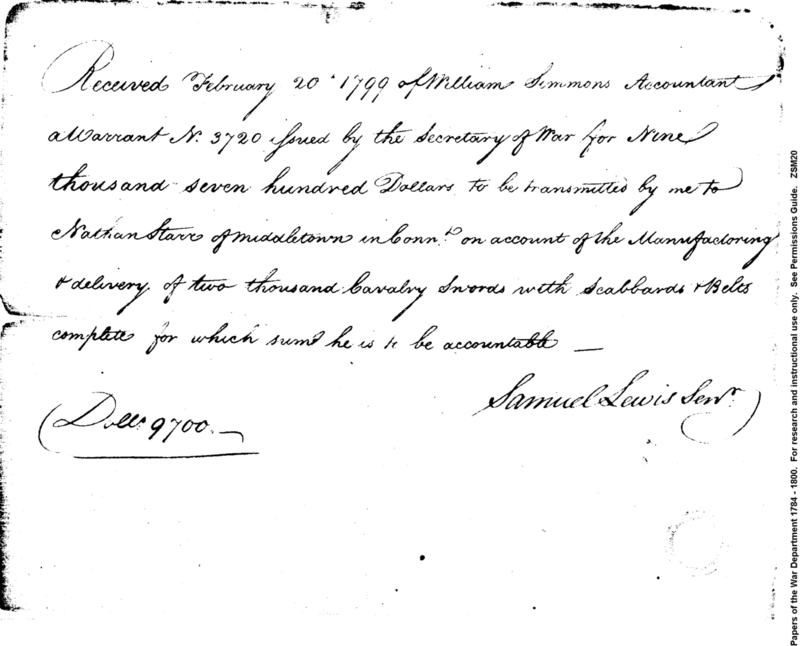 Received February 20th 1799 of William Simmons Accountant
a Warrant No. 3720 issued by the Secretary of War for Nine
thousand seven hundred Dollars to be transmitted by me to
Nathan Starr of Middletown in Connt. on account of the Manufactoring
& delivery of two thousand Cavalry Swords with Scabbards & Belts
complete for which sum he is to be accountable —
Samuel Lewis Senr.
(Dolls. 9700.—
Papers of the War Department 1784 - 1800. For research and instructional use only. See Permissions Guide. ZSM20